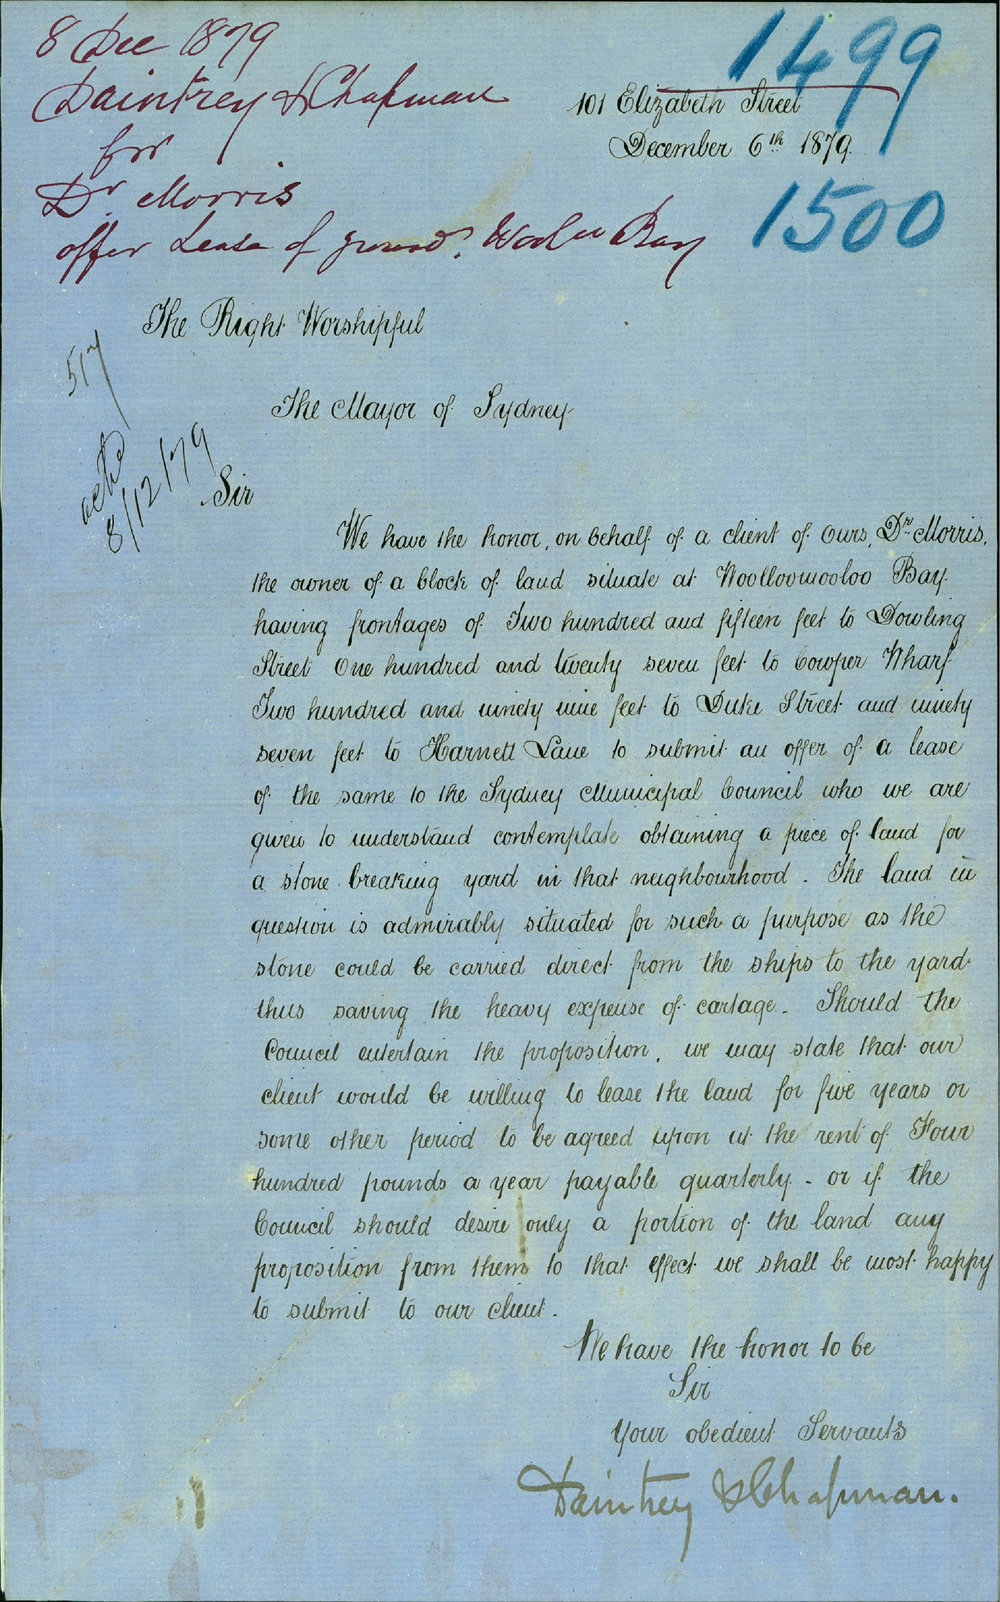 8 Dec 1879
Daintrey & Chapman
for
Dr Morris
offer Lease of ground, Wooloo Bay
1499
1500
101 Elizabeth Street
December 6th 1879.
The Right Worshipful
The Mayor of Sydney
517
8/12/79
Sir
We have the honor, on behalf of a client of Ours, Dr Morris,
the owner of a block of land situate at Woolloomooloo Bay
having frontages of Two hundred and fifteen feet to Dowling
Street One hundred and twenty seven feet to Cowper Wharf
Two hundred and ninety nine feet to Duke Street and ninety
seven feet to Harnett Lane to submit an offer of a lease
of the same to the Sydney Municipal Council who we are
given to understand contemplate obtaining a piece of land for
a stone breaking yard in that neighbourhood. The land in
question is admirably situated for such a purpose as the
stone could be carried direct from the ships to the yard
thus saving the heavy expense of cartage. Should the
Council entertain the proposition, we may state that our
client would be willing to lease the land for five years or
some other period to be agreed upon at the rent of Four
hundred pounds a year payable quarterly - or if the
Council should desire only a portion of the land any
proposition from them to that effect we shall be most happy
to submit to our client.
We have the honor to be
Sir
Your obedient Servants
Daintrey & Chapman.